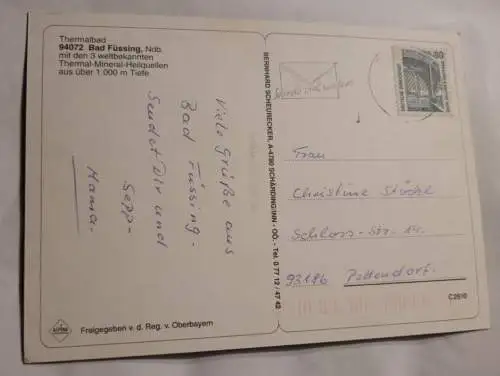 Thermalbad
94072 Bad Füssing, Ndb.
mit den 3 weltbekannten
Thermal-Mineral-Heilquellen
aus über 1 000 m Tiefe
Viele Grüße aus
Bad Füssing-
Sendet Dir und
Sepp-
Mama.
ALPINA
Freigegeben v. d. Reg. v. Oberbayern
BERNHARD SCHEURECKER, A-4780 SCHÄRDING/INN - OÖ. - Tel. 0 77 12 / 47 42
80
DEUTSCHE BUNDESPOST
Frau
Christine
Schloss-Str. 14.
93186 Pettendorf.
C2610